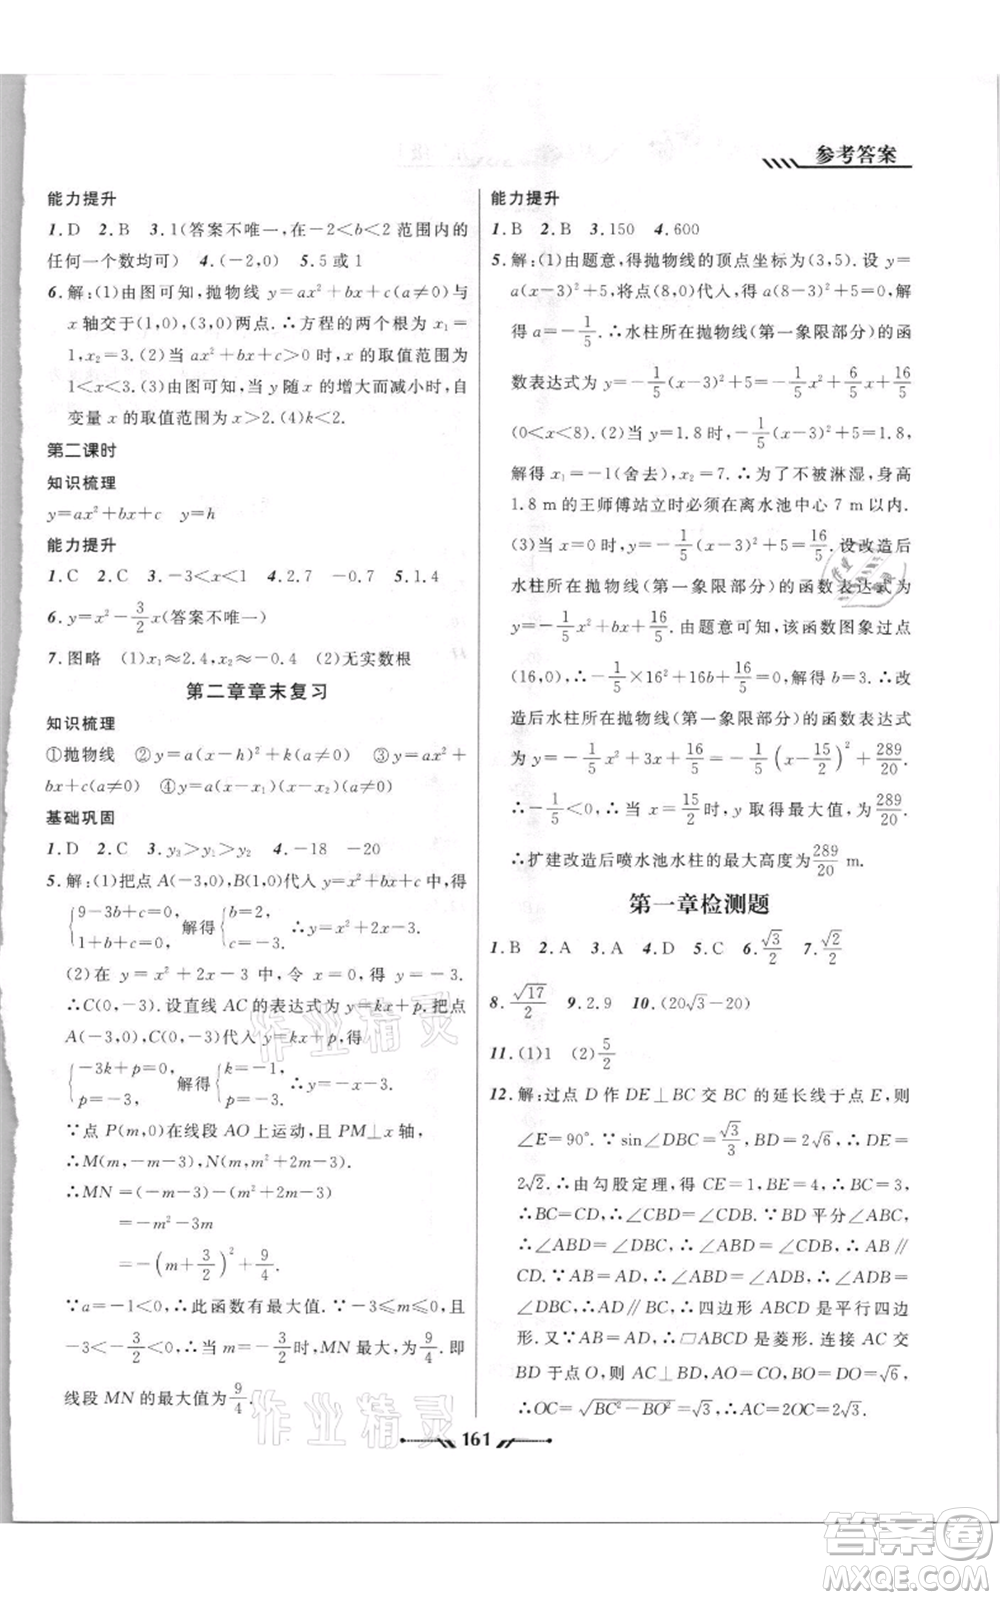 参考答案
能力提升
1.D 2.B 3.1(答案不唯一,在-2<b<2范围内的
任何一个数均可) 4.(-2,0) 5.5或1
6.解:(1)由图可知,抛物线y=ax²+bx+c(a≠0)与
x轴交于(1,0),(3,0)两点.∴方程的两个根为x₁=
1,x₂=3.(2)当ax²+bx+c>0时,x的取值范围为
1<x<3.(3)由图可知,当y随x的增大而减小时,自
变量x的取值范围为x>2.(4)k<2.
第二课时
知识梳理
y=ax²+bx+c y=h
能力提升
1.C 2.C 3.-3<x<1 4.2.7 -0.7 5.1.4
6.y=x²-3/2x(答案不唯一)
7.图略 (1)x₁≈2.4,x₂≈-0.4 (2)无实数根
第二章章末复习
知识梳理
①抛物线 ②y=a(x-h)²+k(a≠0) ③y=ax²+
bx+c(a≠0) ④y=a(x-x₁)(x-x₂)(a≠0)
基础巩固
1.D 2.C 3.y₃>y₁>y₂ 4.-18 -20
5.解:(1)把点A(-3,0),B(1,0)代入y=x²+bx+c,得
{9-3b+c=0, 1+b+c=0, 解得{b=2, c=-3. ∴y=x²+2x-3.
(2)在y=x²+2x-3中,令x=0,得y=-3.
∴C(0,-3).设直线AC的表达式为y=kx+p.把点
A(-3,0),C(0,-3)代入y=kx+p,得
{-3k+p=0, p=-3. 解得{k=-1, p=-3. ∴y=-x-3.
∵点P(m,0)在线段AO上运动,且PM⊥x轴,
∴M(m,-m-3),N(m,m²+2m-3).
∴MN=(-m-3)-(m²+2m-3)
=-m²-3m
=-(m+3/2)²+9/4.
∵a=-1<0,∴此函数有最大值.∵-3≤m≤0,且
-3<-3/2<0,∴当m=-3/2时,MN最大,为9/4.即
线段MN的最大值为9/4.
能力提升
1.B 2.B 3.150 4.600
5.解:(1)由题意,得抛物线的顶点坐标为(3,5).设y=
a(x-3)²+5,将点(8,0)代入,得a(8-3)²+5=0.解
得a=-1/5.∴水柱所在抛物线(第一象限部分)的函
数表达式为y=-1/5(x-3)²+5=-1/5x²+6/5x+16/5
(0<x<8).(2)当y=1.8时,-1/5(x-3)²+5=1.8,
解得x₁=-1(舍去),x₂=7.∴为了不被淋湿,身高
1.8 m的王师傅站立时必须在离水池中心7 m以内.
(3)当x=0时,y=-1/5(x-3)²+5=16/5.设改造后
水柱所在抛物线(第一象限部分)的函数表达式为
y=-1/5x²+bx+16/5.由题意可知,该函数图象过点
(16,0),∴-1/5×16²+16b+16/5=0.解得b=3.∴改
造后水柱所在抛物线(第一象限部分)的函数表达式
为y=-1/5x²+3x+16/5=-1/5(x-15/2)²+289/20.
∴-1/5<0,∴当x=15/2时,y取得最大值,为289/20.
∴扩建改造后喷水池水柱的最大高度为289/20 m.
第一章检测题
1.B 2.A 3.A 4.D 5.C 6.√3/2 7.√2/2
8.√17/2 9.2.9 10.(20√3-20)
11.(1)1 (2)5/2
12.解:过点D作DE⊥BC交BC的延长线于点E,则
∠E=90°.∵sin∠DBC=√3/3,BD=2√6,∴DE=
2√2.∴由勾股定理,得CE=1,BE=4,∴BC=3,
∴BC=CD,∴∠CBD=∠CDB.∵BD平分∠ABC,
∴∠ABD=∠DBC,∴∠ABD=∠CDB,∴AB∥
CD.同理可得AD∥BC,∴四边形ABCD是平行四边
形.又∵BC=CD,∴▱ABCD是菱形.连接AC交
BD于点O,则AC⊥BD,AO=CO,BO=DO=√6,
∴OC=√(BC²-BO²)=√3,∴AC=2OC=2√3.
161
作业精灵
作业精灵
答案卷
MXQE.COM